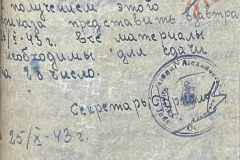 получением этого
приказа представить завтра
/X-43г. Все материалы
необходимы для сдачи
на 28 число.
Секретарь
25/X-43г.